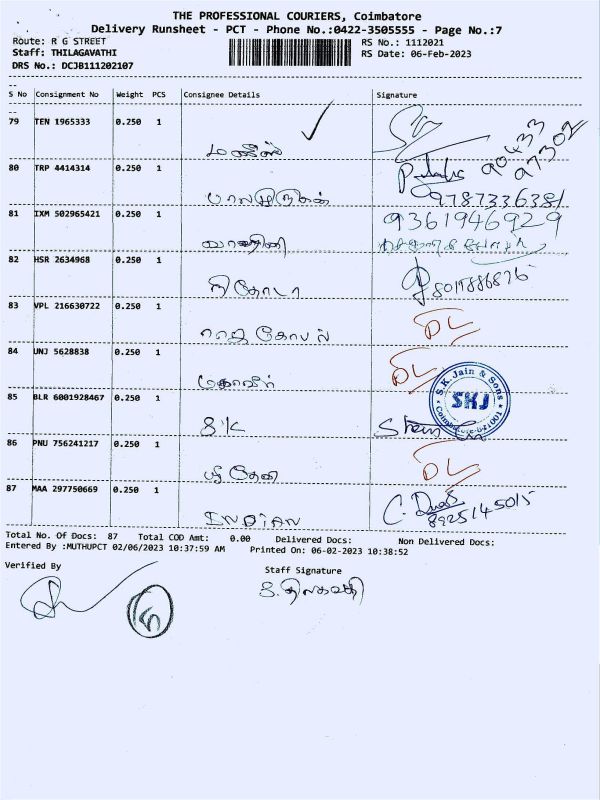 THE PROFESSIONAL COURIERS, Coimbatore
Delivery Runsheet - PCT - Phone No.:0422-3505555 - Page No.:7
Route: R G STREET
RS No.: 1112021
Staff: THILAGAVATHI
RS Date: 06-Feb-2023
DRS No.: DCJB111202107
S No Consignment No Weight PCS Consignee Details Signature
79 TEN 1965333 0.250 1
90433
97302
80 TRP 4414314 0.250 1
பாலமுருகன்
9787336381
81 IXM 502965421 0.250 1
9361946929
82 HSR 2634968 0.250 1
8015886876
83 VPL 216630722 0.250 1
ராஜ கோபால்
DL
84 UNJ 5628838 0.250 1
மகாவீர்
DL
85 BLR 6001928467 0.250 1
SK
S.K. Jain & Sons
SKJ
86 PNU 756241217 0.250 1
ஸ்ரீ தேவி
DL
87 MAA 297750669 0.250 1
INDIAN
8925145015
Total No. Of Docs: 87 Total COD Amt: 0.00 Delivered Docs: Non Delivered Docs:
Entered By :MUTHUPCT 02/06/2023 10:37:59 AM Printed On: 06-02-2023 10:38:52
Verified By
Staff Signature
S.திலகவதி